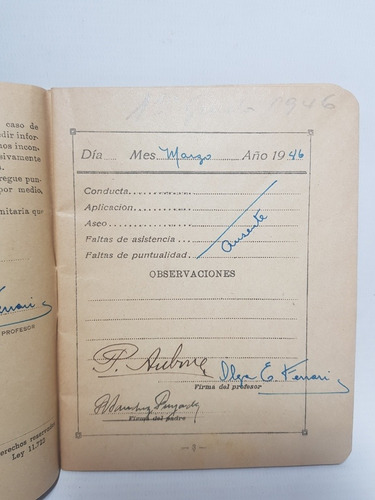 caso de
dir infor-
mos incon-
sivamente
regue pun-
por medio,
nitaria que
PROFESOR
derechos reservados
Ley 11.723
1946
Día Mes Marzo Año 1946
Conducta
Aplicacion
Aseo
Faltas de asistencia
Faltas de puntualidad
Ausente
OBSERVACIONES
Olga E. Ferrari
Firma del profesor
Firma del padre